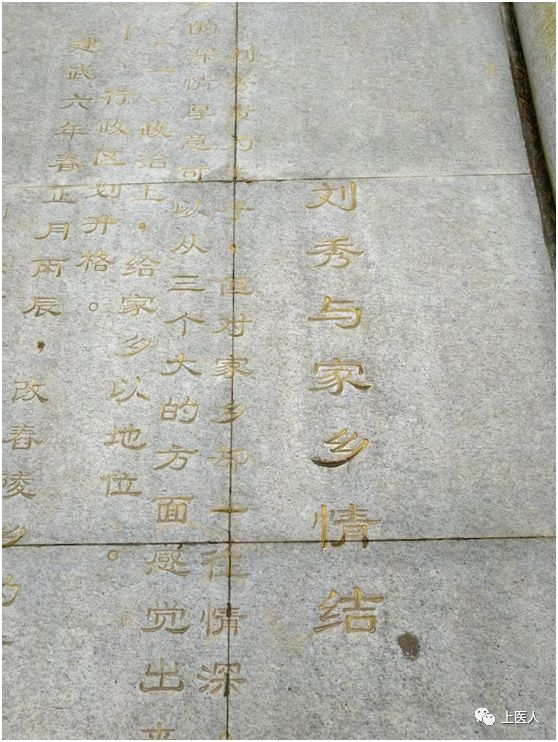 刘秀与家乡情结
刘秀贵为天子，但对家乡却一往情深，
的深情厚意可以从三个大的方面感觉出来
一、政治上，给家乡以地位。
、行政区划升格。
建武六年春正月丙辰，改舂陵乡
上医人